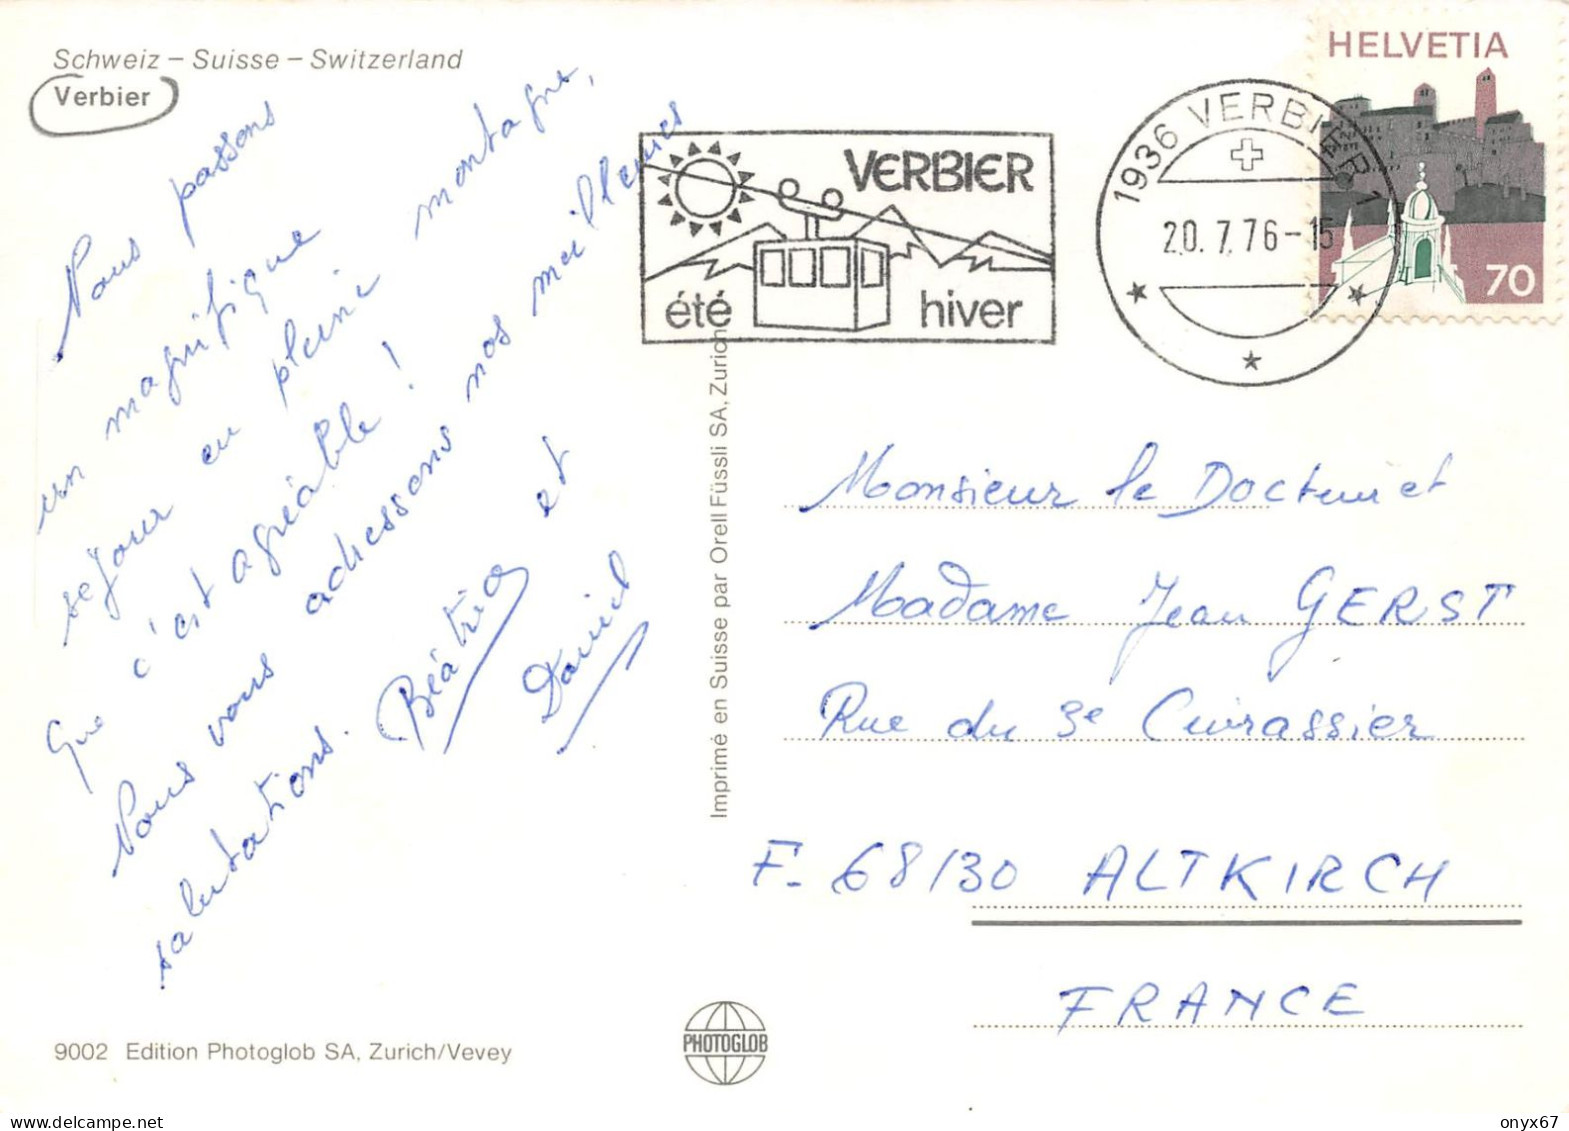 Schweiz – Suisse – Switzerland
Verbier
Nous passons
un magnifique
séjour en pleine montagne,
Que c'est agréable !
Nous vous adressons nos meilleures
salutations. Béatrice et
Daniel
VERBIER
été hiver
1936 VERBIER 1
20.7.76-15
HELVETIA
70
Imprimé en Suisse par Orell Füssli SA, Zurich
Monsieur le Docteur et
Madame Jean GERST
Rue du 3e Cuirassier
F. 68130 ALTKIRCH
FRANCE
9002 Edition Photoglob SA, Zurich/Vevey
PHOTOGLOB
onyx67